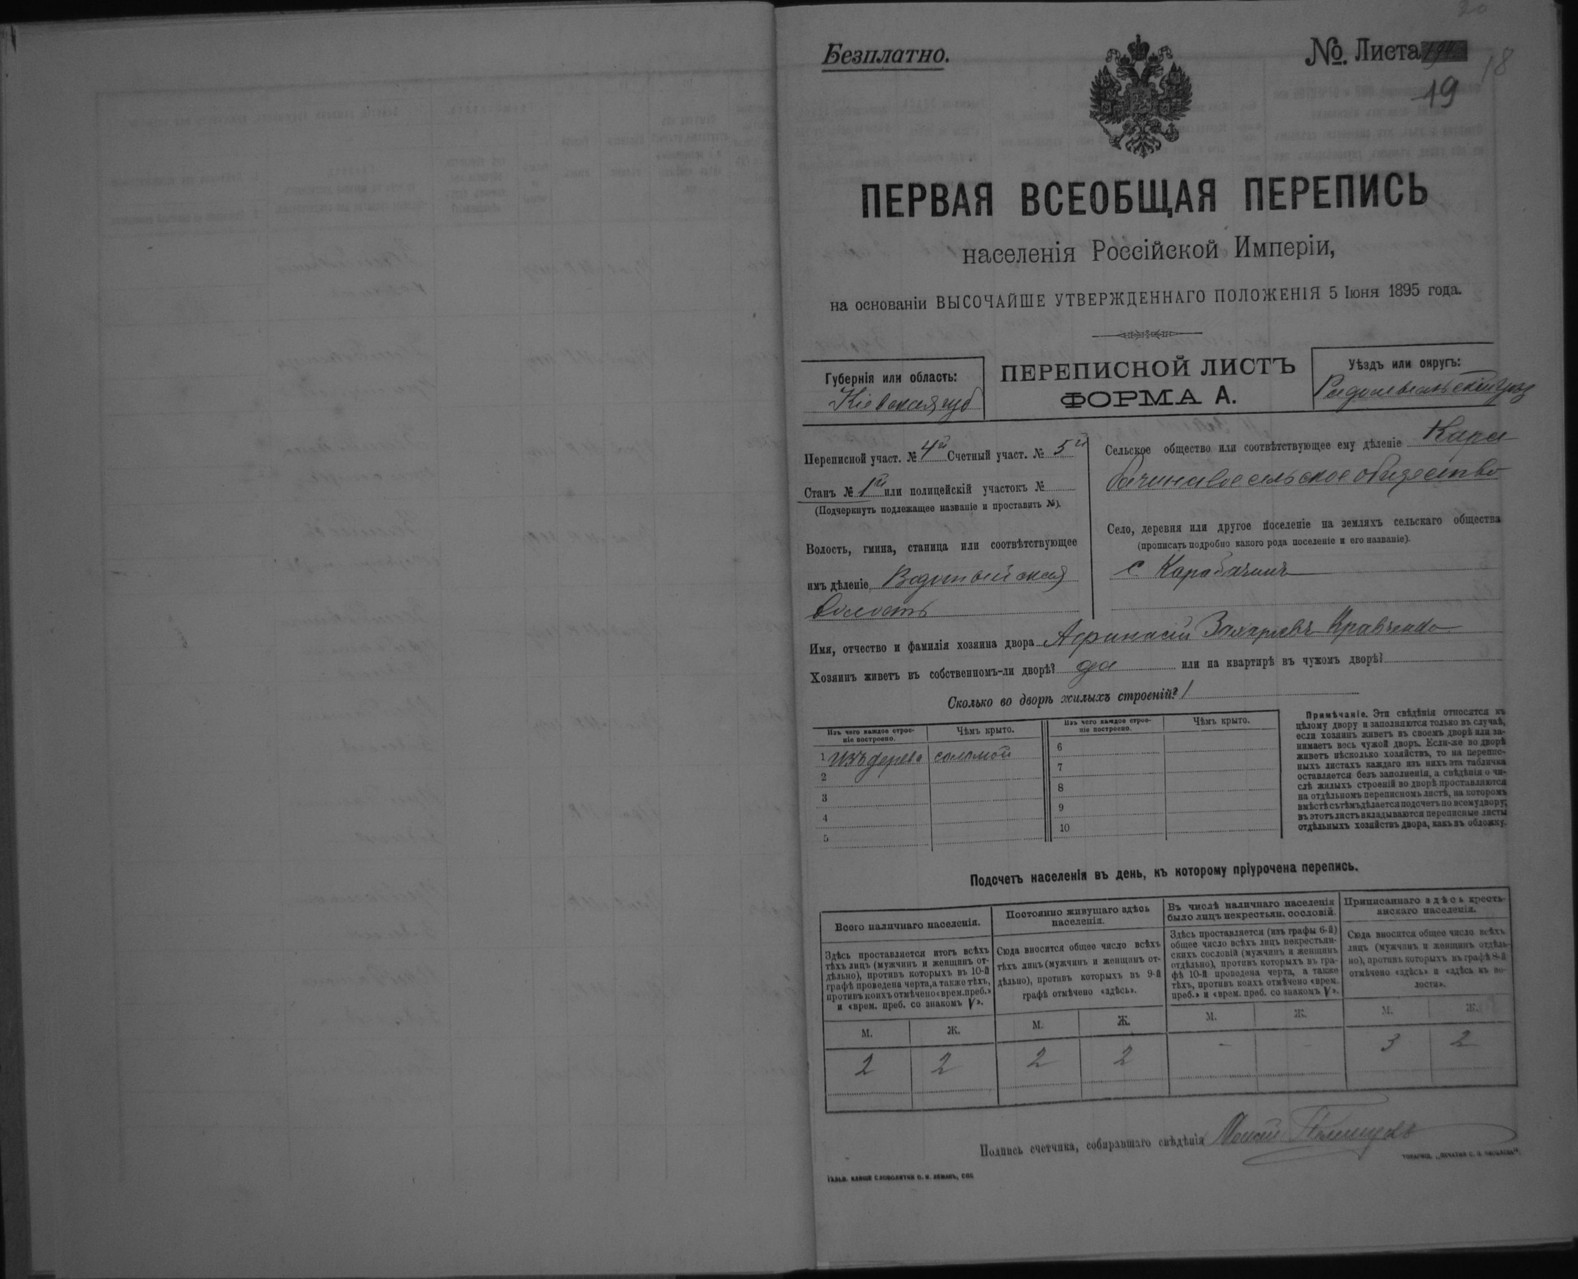 20
Безплатно.
№ Листа
18
19
ПЕРВАЯ ВСЕОБЩАЯ ПЕРЕПИСЬ
населенія Россійской Имперіи,
на основаніи ВЫСОЧАЙШЕ УТВЕРЖДЕННАГО ПОЛОЖЕНІЯ 5 Іюня 1895 года.
Губернія или область:
Кіевская губ
ПЕРЕПИСНОЙ ЛИСТЪ
ФОРМА А.
Уѣздъ или округъ:
Радомысльскій уезд
Переписной участ. № 4й Счетный участ. № 5й
Станъ № 1й или полицейскій участокъ №
(Подчеркнуть подлежащее названіе и проставить №).
Волость, гмина, станица или соотвѣтствующее
имъ дѣленіе Водотыйская
волость
Сельское общество или соотвѣтствующее ему дѣленіе Кара
бачинское сельское общество
Село, деревня или другое поселеніе на земляхъ сельскаго общества
(прописать подробно какого рода поселеніе и его названіе).
с. Карабачинъ
Имя, отчество и фамилія хозяина двора Афанасій Захарьевъ Кравченко
Хозяинъ живетъ въ собственномъ-ли дворѣ? да или на квартирѣ въ чужомъ дворѣ?
Сколько во дворѣ жилыхъ строеній? 1
Изъ чего каждое строе-
ніе построено.
Чѣмъ крыто.
1 изъ дерева соломой
2
3
4
5
Изъ чего каждое строе-
ніе построено.
Чѣмъ крыто.
6
7
8
9
10
Примѣчаніе. Эти свѣдѣнія относятся къ
цѣлому двору и заполняются только въ случаѣ,
если хозяинъ живетъ въ своемъ дворѣ или за-
нимаетъ весь чужой дворъ. Если-же во дворѣ
живетъ нѣсколько хозяйствъ, то на перепис-
ныхъ листахъ каждаго изъ нихъ эта табличка
оставляется безъ заполненія, а свѣдѣнія о чи-
слѣ жилыхъ строеній во дворѣ проставляются
на отдѣльномъ переписномъ листѣ, на которомъ
вмѣстѣ съ тѣмъ дѣлается подсчетъ по всему двору;
въ этотъ листъ вкладываются переписные листы
отдѣльныхъ хозяйствъ двора, какъ въ обложку.
Подсчетъ населенія въ день, къ которому пріурочена перепись.
Всего наличнаго населенія.
Здѣсь проставляется итогъ всѣхъ
тѣхъ лицъ (мужчинъ и женщинъ от-
дѣльно), противъ которыхъ въ 10-й
графѣ проведена черта, а также тѣхъ,
противъ коихъ отмѣчено «врем. преб.»
и «врем. преб. со знакомъ V».
М. Ж.
2 2
Постоянно живущаго здѣсь
населенія.
Сюда вносится общее число всѣхъ
тѣхъ лицъ (мужчинъ и женщинъ от-
дѣльно), противъ которыхъ въ 9-й
графѣ отмѣчено «здѣсь».
М. Ж.
2 2
Въ числѣ наличнаго населенія
было лицъ некрестьян. сословій.
Здѣсь проставляется (изъ графы 6-й)
общее число всѣхъ лицъ некрестьян-
скихъ сословій (мужчинъ и женщинъ
отдѣльно), противъ которыхъ въ гра-
фѣ 10-й проведена черта, а также
тѣхъ, противъ коихъ отмѣчено «врем.
преб.» и «врем. преб. со знакомъ V».
М. Ж.
- -
Приписаннаго здѣсь кресть-
янскаго населенія.
Сюда вносится общее число всѣхъ
лицъ (мужчинъ и женщинъ отдѣль-
но), противъ которыхъ въ графѣ 8-й
отмѣчено «здѣсь» и «здѣсь въ во-
лости».
М. Ж.
3 2
Подпись счетчика, собиравшаго свѣдѣнія